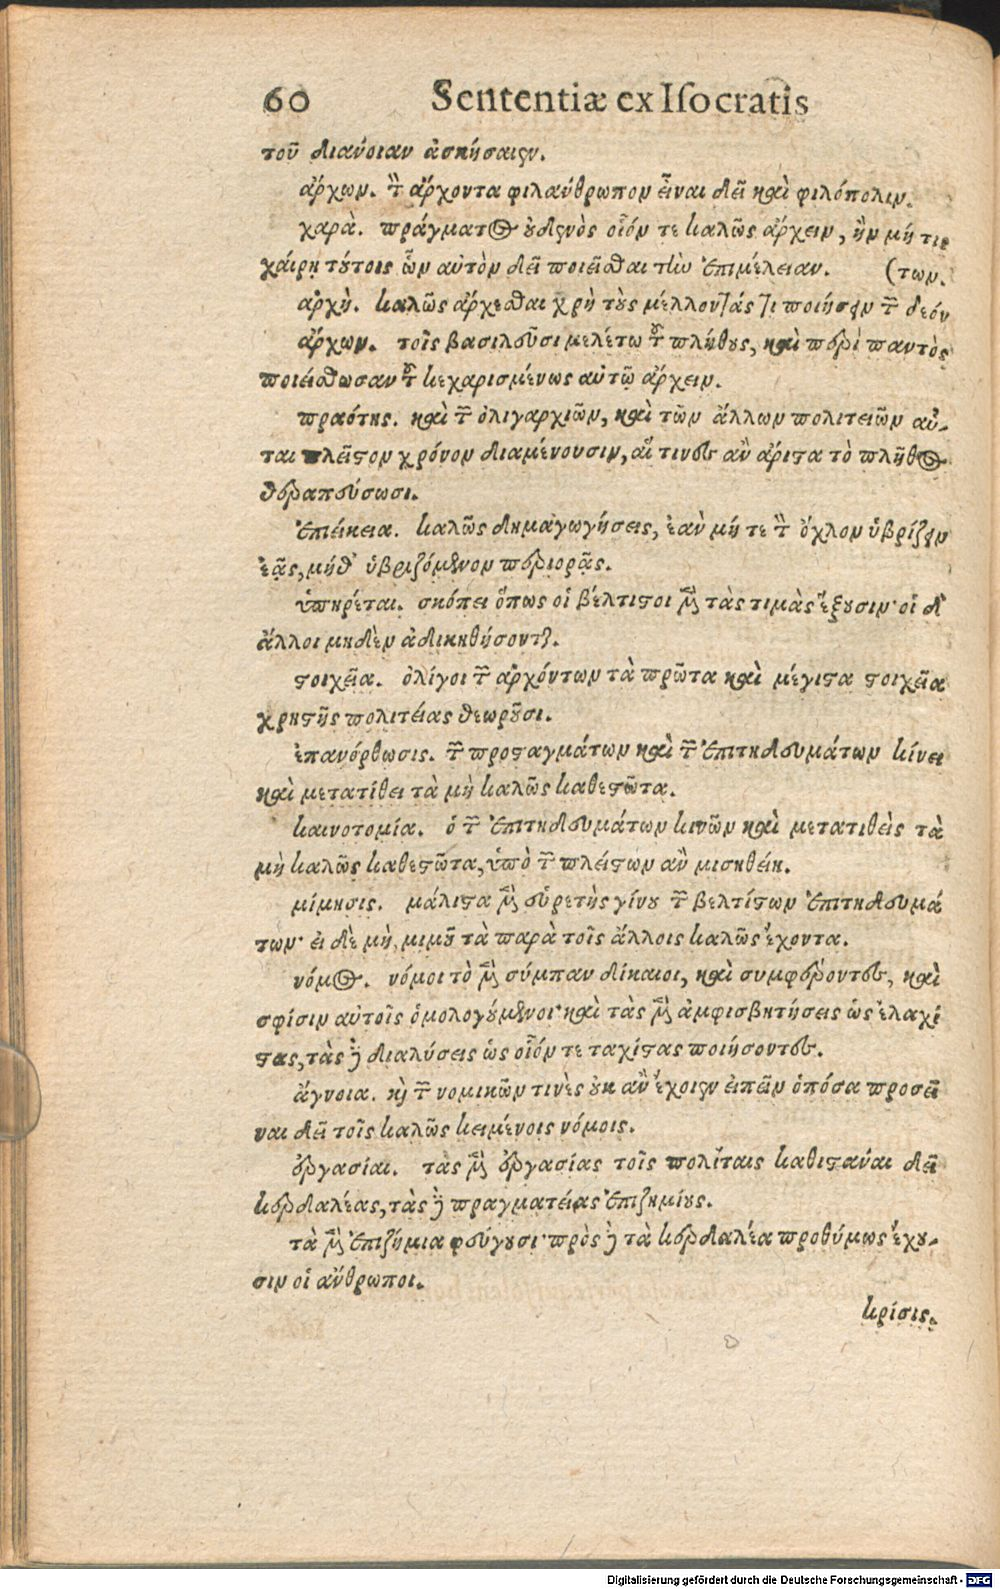 60 Sententiæ ex Isocratis
τοῦ διάνοιαν ἀσκήσαιεν.
ἄρχων. τὸν ἄρχοντα φιλάνθρωπον εἶναι δεῖ καὶ φιλόπολιν.
χαρὰ. πράγματος οὐδενὸς οἷόν τε καλῶς ἄρχειν, ἢν μή τις
χαίρῃ τούτοις ὧν αὐτὸν δεῖ ποιεῖσθαι τὴν ἐπιμέλειαν. (των.
ἀρχὴ. καλῶς ἄρχεσθαι χρὴ τοὺς μέλλοντάς τι ποιήσειν τῶν δεόν
ἄρχων. τοῖς βασιλεῦσι μελέτω τοῦ πλήθους, καὶ περὶ παντὸς
ποιείσθωσαν τοῦ κεχαρισμένως αὐτῷ ἄρχειν.
πραότης. καὶ τῶν ὀλιγαρχιῶν, καὶ τῶν ἄλλων πολιτειῶν αὗ-
ται πλεῖστον χρόνον διαμένουσιν, αἵ τινες ἂν ἄριστα τὸ πλῆθος
θεραπεύσωσι.
ἐπιείκεια. καλῶς δημαγωγήσεις, ἐὰν μή τε τὸν ὄχλον ὑβρίζειν
ἐᾷς, μήθ' ὑβριζόμενον περιορᾷς.
ὑπηρέται. σκόπει ὅπως οἱ βέλτιστοι μὲν τὰς τιμὰς ἕξουσιν· οἱ δ'
ἄλλοι μηδὲν ἀδικηθήσονται.
στοιχεῖα. ὀλίγοι τῶν ἀρχόντων τὰ πρῶτα καὶ μέγιστα στοιχεῖα
χρηστῆς πολιτείας θεωροῦσι.
ἐπανόρθωσις. τῶν προσταγμάτων καὶ τῶν ἐπιτηδευμάτων κίνει
καὶ μετατίθει τὰ μὴ καλῶς καθεστῶτα.
καινοτομία. ὁ τῶν ἐπιτηδευμάτων κινῶν καὶ μετατιθεὶς τὰ
μὴ καλῶς καθεστῶτα, ὑπὸ τῶν πλείστων ἂν μισηθείη.
μίμησις. μάλιστα μὲν εὑρετὴς γίνου τῶν βελτίστων ἐπιτηδευμά
των· εἰ δὲ μὴ, μιμοῦ τὰ παρὰ τοῖς ἄλλοις καλῶς ἔχοντα.
νόμος. νόμοι τὸ μὲν σύμπαν δίκαιοι, καὶ συμφέροντες, καὶ
σφίσιν αὐτοῖς ὁμολογούμενοι· καὶ τὰς μὲν ἀμφισβητήσεις ὡς ἐλαχί
στας, τὰς δὲ διαλύσεις ὡς οἷόν τε ταχίστας ποιήσοντες.
ἄγνοια. καὶ τῶν νομικῶν τινὲς οὐκ ἂν ἔχοιεν εἰπεῖν ὁπόσα προσεῖ
ναι δεῖ τοῖς καλῶς κειμένοις νόμοις.
ἐργασίαι. τὰς μὲν ἐργασίας τοῖς πολίταις καθιστάναι δεῖ
κερδαλέας, τὰς δὲ πραγματείας ἐπιζημίους.
τὰ μὲν ἐπιζήμια φεύγουσι· πρὸς δὲ τὰ κερδαλέα προθύμως ἔχου-
σιν οἱ ἄνθρωποι.
κρίσις.
Digitalisierung gefördert durch die Deutsche Forschungsgemeinschaft - DFG